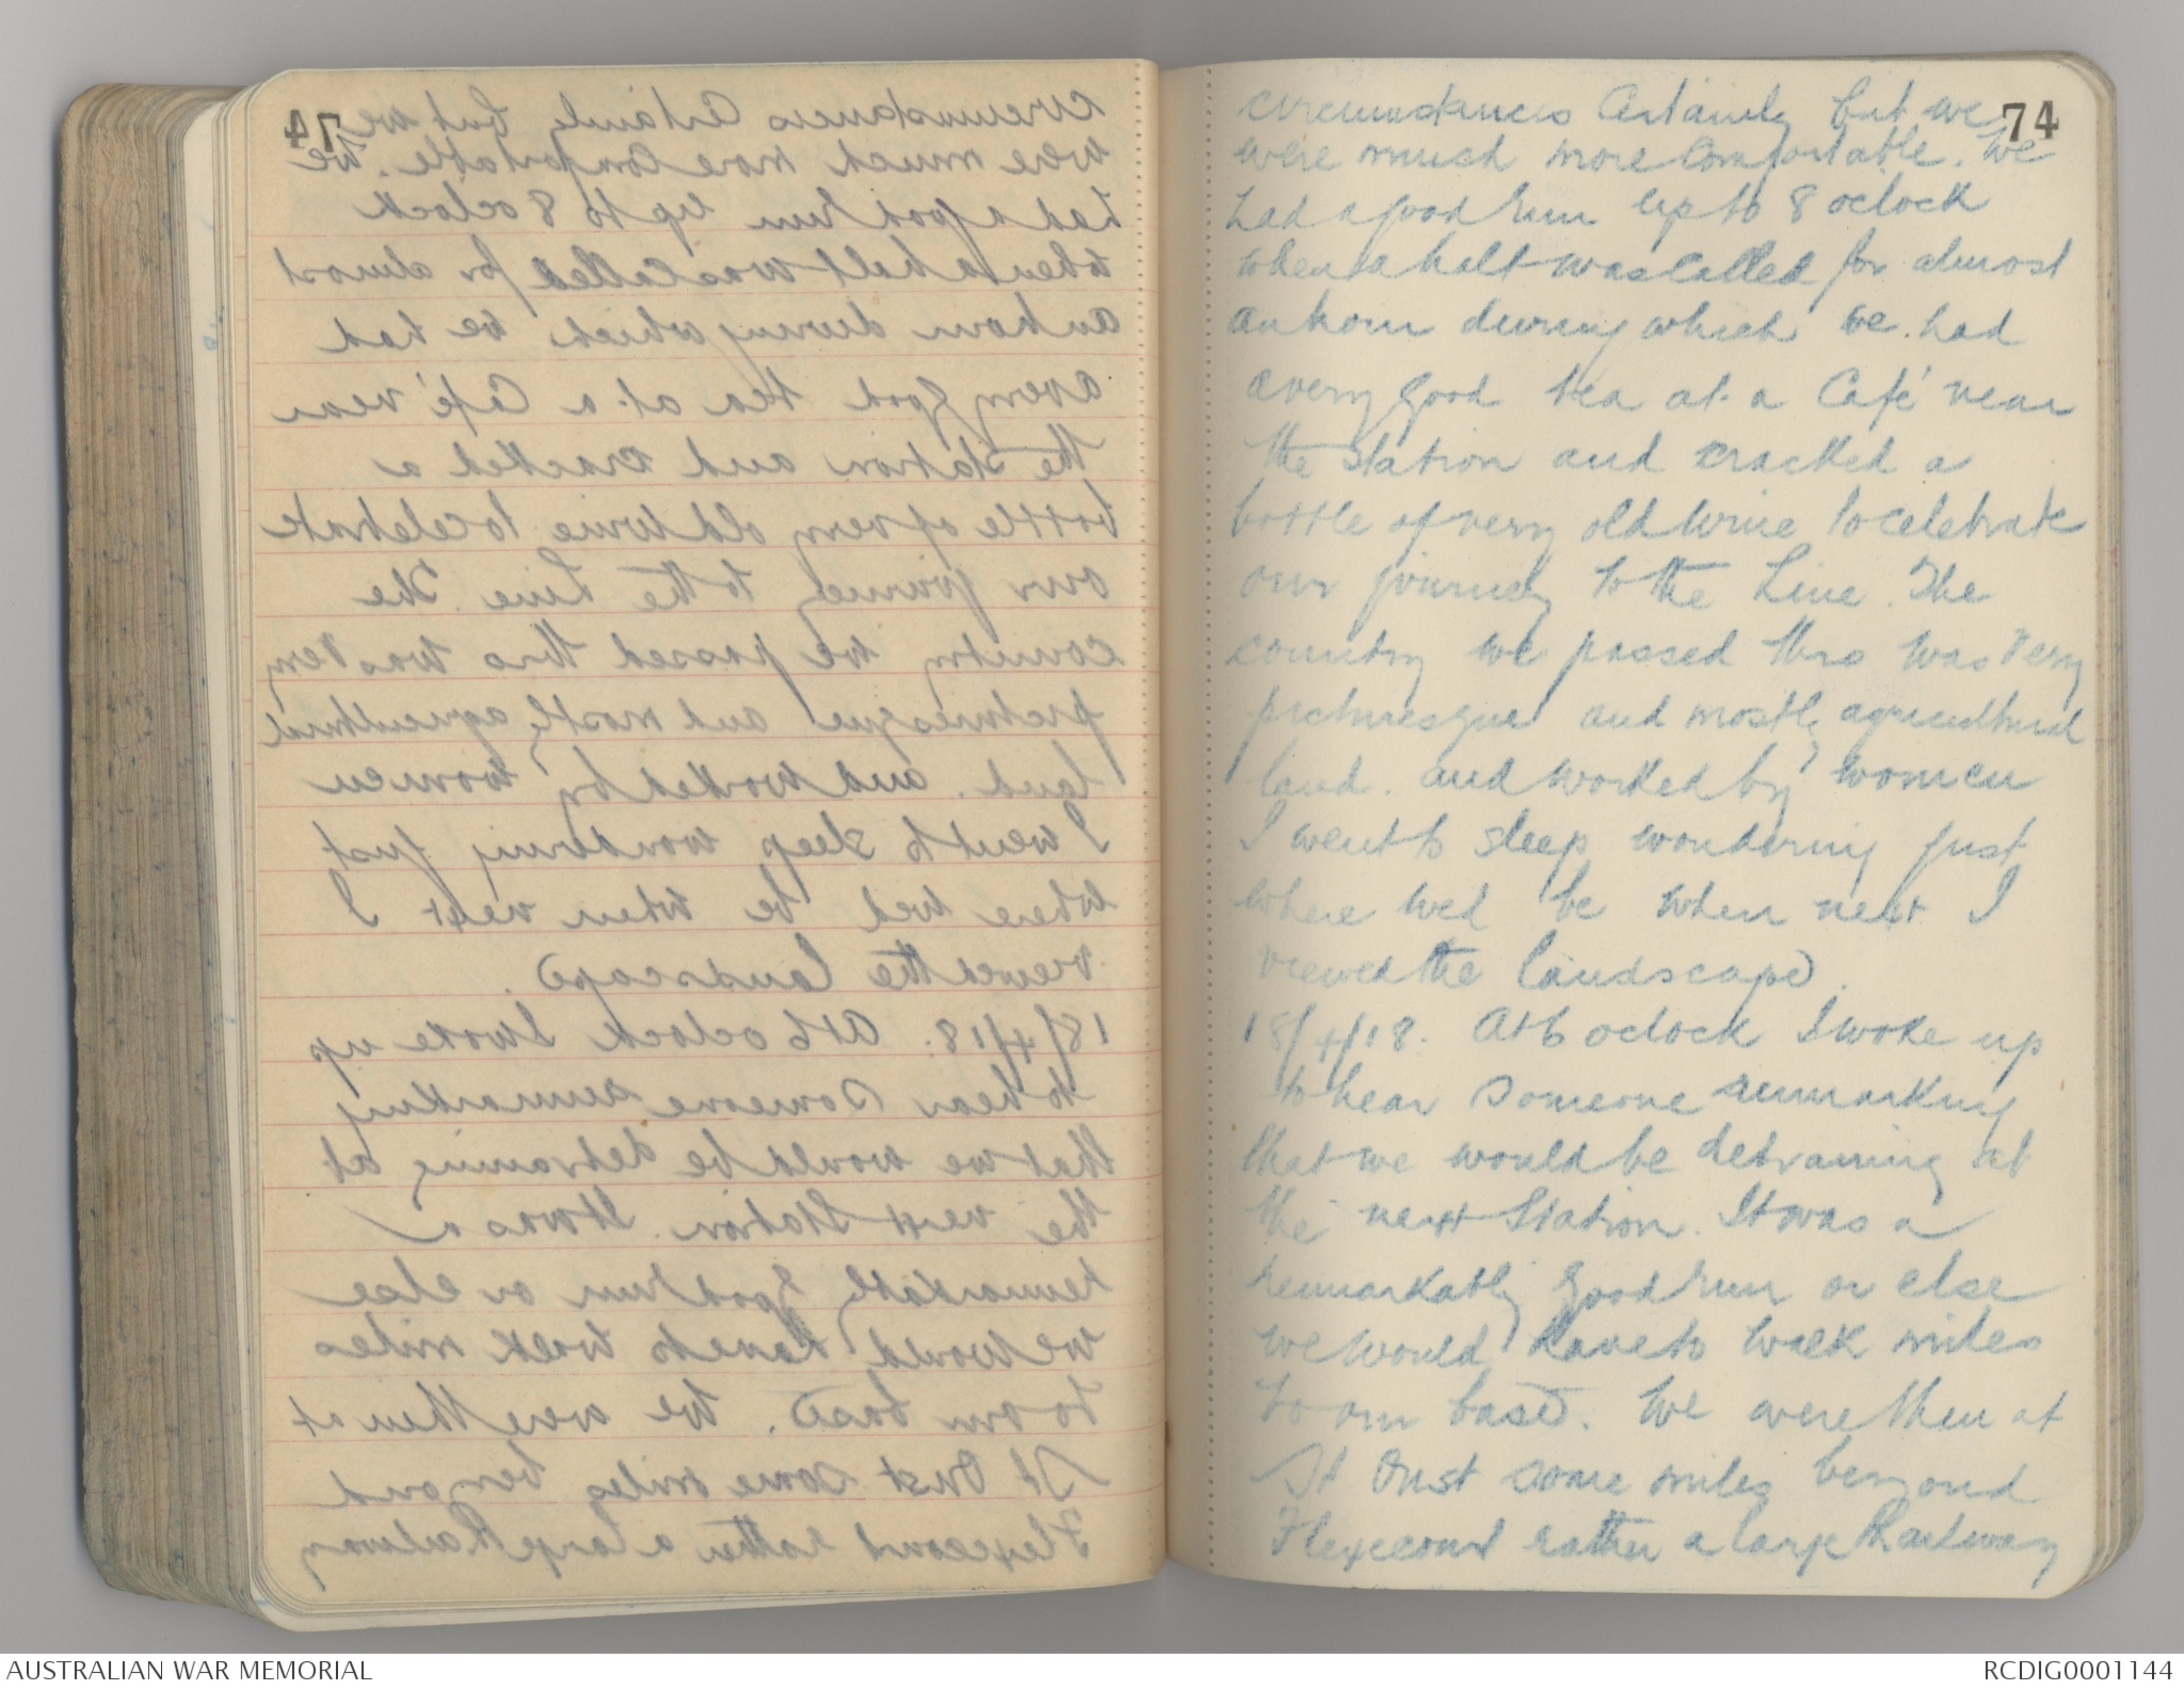 74
circumstances Certainly but we
were much more Comfortable. We
had a good run up to 8 oclock
when a halt was Called for almost
an hour during which we had
a very good tea at a Café near
the station and cracked a
bottle of very old wine to celebrate
our journey to the Line. The
country we passed thro was very
picturesque and mostly agricultural
land. and worked by women
I went to sleep wondering just
where wed be when next I
viewed the landscape.
18/4/18. At 6 oclock I woke up
to hear someone remarking
that we would be detraining at
the next Station. It was a
remarkably good run or else
we would have to walk miles
to our base. We were then at
St Oust some miles beyond
Flexecourt rather a large Railway
AUSTRALIAN WAR MEMORIAL
RCDIG0001144